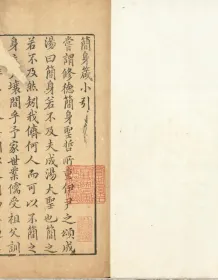 簡身箴小引
嘗謂修德簡身聖哲所重伊尹之頌成
湯曰簡身若不及夫成湯大聖也簡之
若不及然矧我儕何人而可以不簡之
身
壤間乎予家世業儒受祖父訓